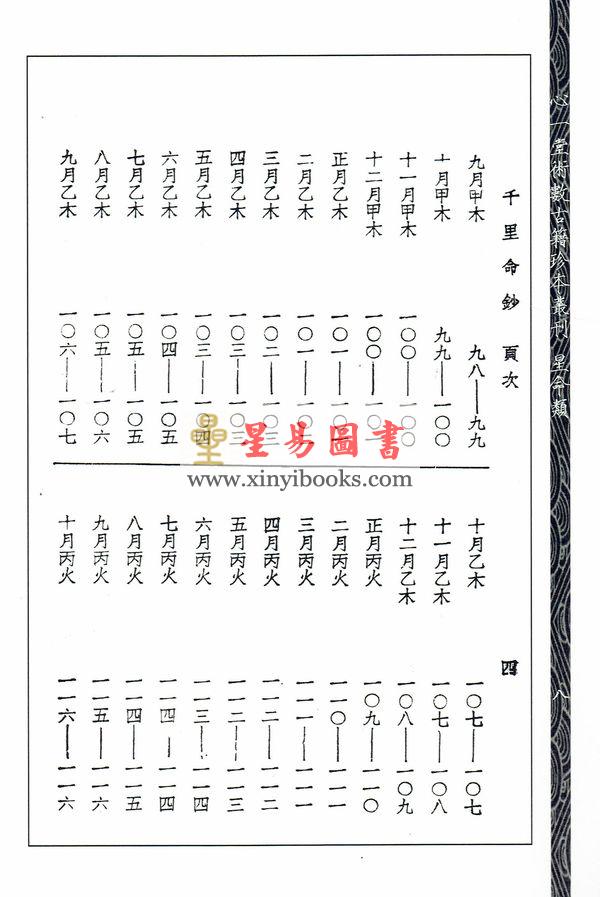 心一堂術數古籍珍本叢刊 星命類
八
千里命鈔 頁次
四
九月甲木 九八——九九
十月甲木 九九——一〇〇
十一月甲木 一〇〇——一〇〇
十二月甲木 一〇〇——一〇一
正月乙木 一〇一——一〇一
二月乙木 一〇一——一〇二
三月乙木 一〇二——一〇三
四月乙木 一〇三——一〇三
五月乙木 一〇三——一〇四
六月乙木 一〇四——一〇五
七月乙木 一〇五——一〇五
八月乙木 一〇五——一〇六
九月乙木 一〇六——一〇七
星易圖書
www.xinyibooks.com
十月乙木 一〇七——一〇七
十一月乙木 一〇七——一〇八
十二月乙木 一〇八——一〇九
正月丙火 一〇九——一一〇
二月丙火 一一〇——一一一
三月丙火 一一一——一一一
四月丙火 一一二——一一二
五月丙火 一一二——一一三
六月丙火 一一三——一一四
七月丙火 一一四——一一四
八月丙火 一一四——一一五
九月丙火 一一五——一一六
十月丙火 一一六——一一六